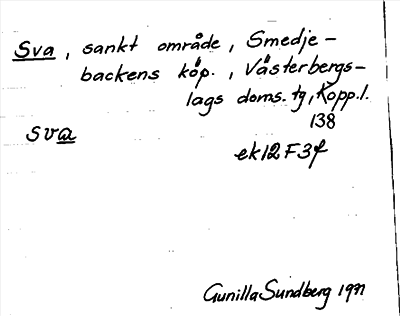 Sva, sankt område, Smedje-
backens köp., Västerbergs-
lags doms. tg, Kopp.l.
138
sva
ek12F3f
Gunilla Sundberg 1971